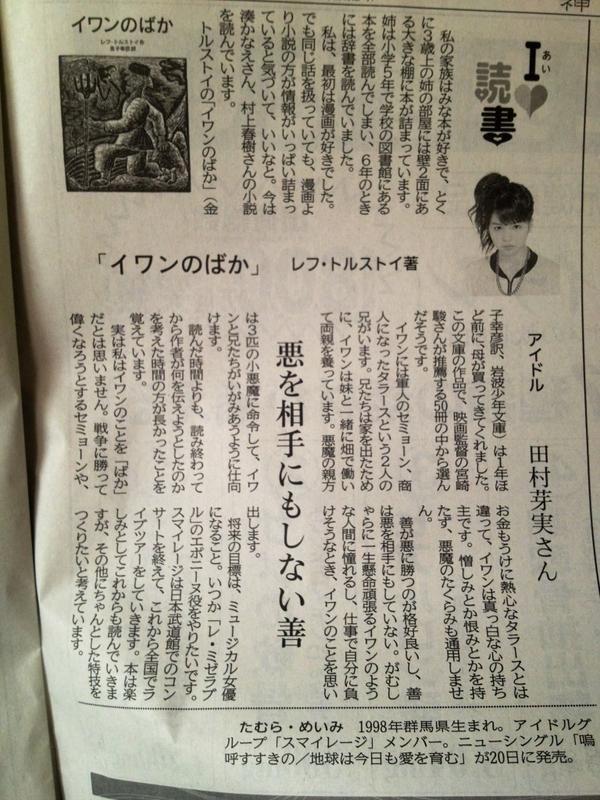 神
I♥読書
あい
イワンのばか
レフ・トルストイ作
金子幸彦訳
私の家族はみな本が好きで、とく
に3歳上の姉の部屋には壁2面にあ
る大きな棚に本が詰まっています。
姉は小学5年で学校の図書館にある
本を全部読んでしまい、6年のとき
には辞書を読んでいました。
私は、最初は漫画が好きでした。
でも同じ話を扱っていても、漫画よ
り小説の方が情報がいっぱい詰まっ
ていると気づいて、いいなと。今は
湊かなえさん、村上春樹さんの小説
を読んでいます。
トルストイの「イワンのばか」(金
「イワンのばか」 レフ・トルストイ著
アイドル 田村芽実さん
子幸彦訳、岩波少年文庫)は1年ほ
ど前に、母が買ってきてくれました。
この文庫の作品で、映画監督の宮崎
駿さんが推薦する50冊の中から選ん
だそうです。
イワンには軍人のセミョーン、商
人になったタラースという2人の
兄がいます。兄たちは家を出たため
に、イワンは妹と一緒に畑で働い
て両親を養っています。悪魔の親方
悪を相手にもしない善
は3匹の小悪魔に命令して、イワ
ンと兄たちがいがみあうように仕向
けます。
読んだ時間よりも、読み終わって
から作者が何を伝えようとしたのか
を考えた時間の方が長かったことを
覚えています。
実は私はイワンのことを「ばか」
だとは思いません。戦争に勝って
偉くなろうとするセミョーンや、
お金もうけに熱心なタラースとは
違って、イワンは真っ白な心の持ち
主です。憎しみとか恨みとかを持
たず、悪魔のたくらみも通用しませ
ん。
善が悪に勝つのが格好良いし、善
は悪を相手にもしていない。がむし
ゃらに一生懸命頑張るイワンのよう
な人間に憧れるし、仕事で自分に負
けそうなとき、イワンのことを思い
出します。
将来の目標は、ミュージカル女優
になること。いつか「レ・ミゼラブ
ル」のエポニーヌ役をやりたいです。
スマイレージは日本武道館でのコン
サートを終えて、これから全国でラ
イブツアーをしていきます。本は楽
しみとしてこれからも読んでいきま
すが、その他にちゃんとした特技を
つくりたいと考えています。
たむら・めいみ 1998年群馬県生まれ。アイドルグ
ループ「スマイレージ」メンバー。ニューシングル「嗚
呼すすきの／地球は今日も愛を育む」が20日に発売。